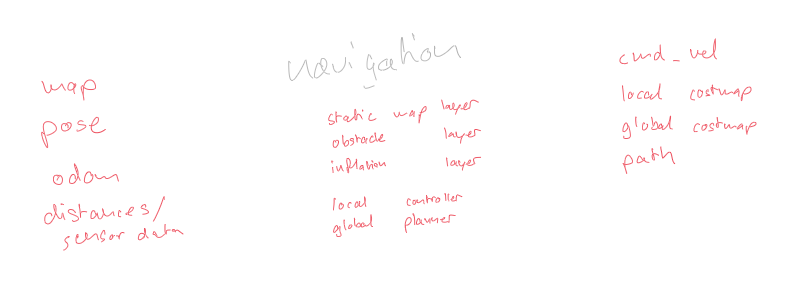 navigation
map
pose
odom
distances/
sensor data
static map layer
obstacle layer
inflation layer
local controller
global planner
cmd_vel
local costmap
global costmap
path